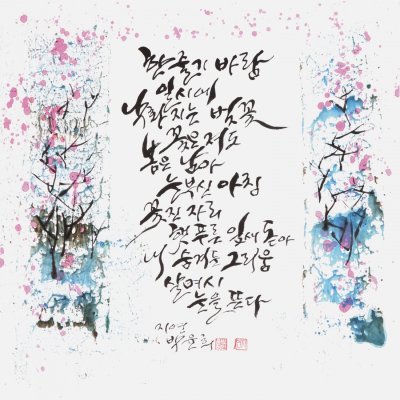 한 줄기 바람
일시에
낙화 치는 벚꽃
꽃은 져도
봄은 남아
눈부신 아침
꽃진 자리
햇푸른 잎새 돋아
나 숨겨둔 그리움
살며시
눈을 뜬다
지연
박윤희